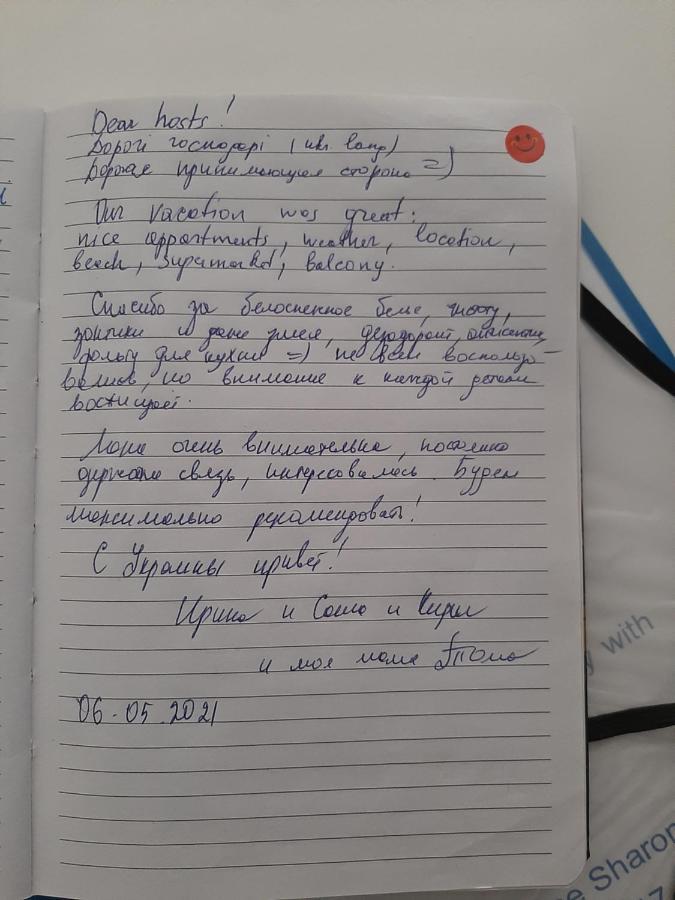 Dear hosts!
Дорогі господарі (ukr. lang)
Дорогая принимающая сторона =)
Our vacation was great:
nice appartments, weather, location,
beach, supermarket, balcony.
Спасибо за белоснежное белье, чистоту,
зонтики и даже дезодорант,
фольгу для кухни =) не всем воспользо-
вались, но внимание к каждой детали
восхищает.
очень внимательна, постоянно
держала связь, интересовалась. Будем
максимально рекомендовать!
С Украины привет!
Ирина и Саша и
и моя мама
06.05.2021
with
e Sharon